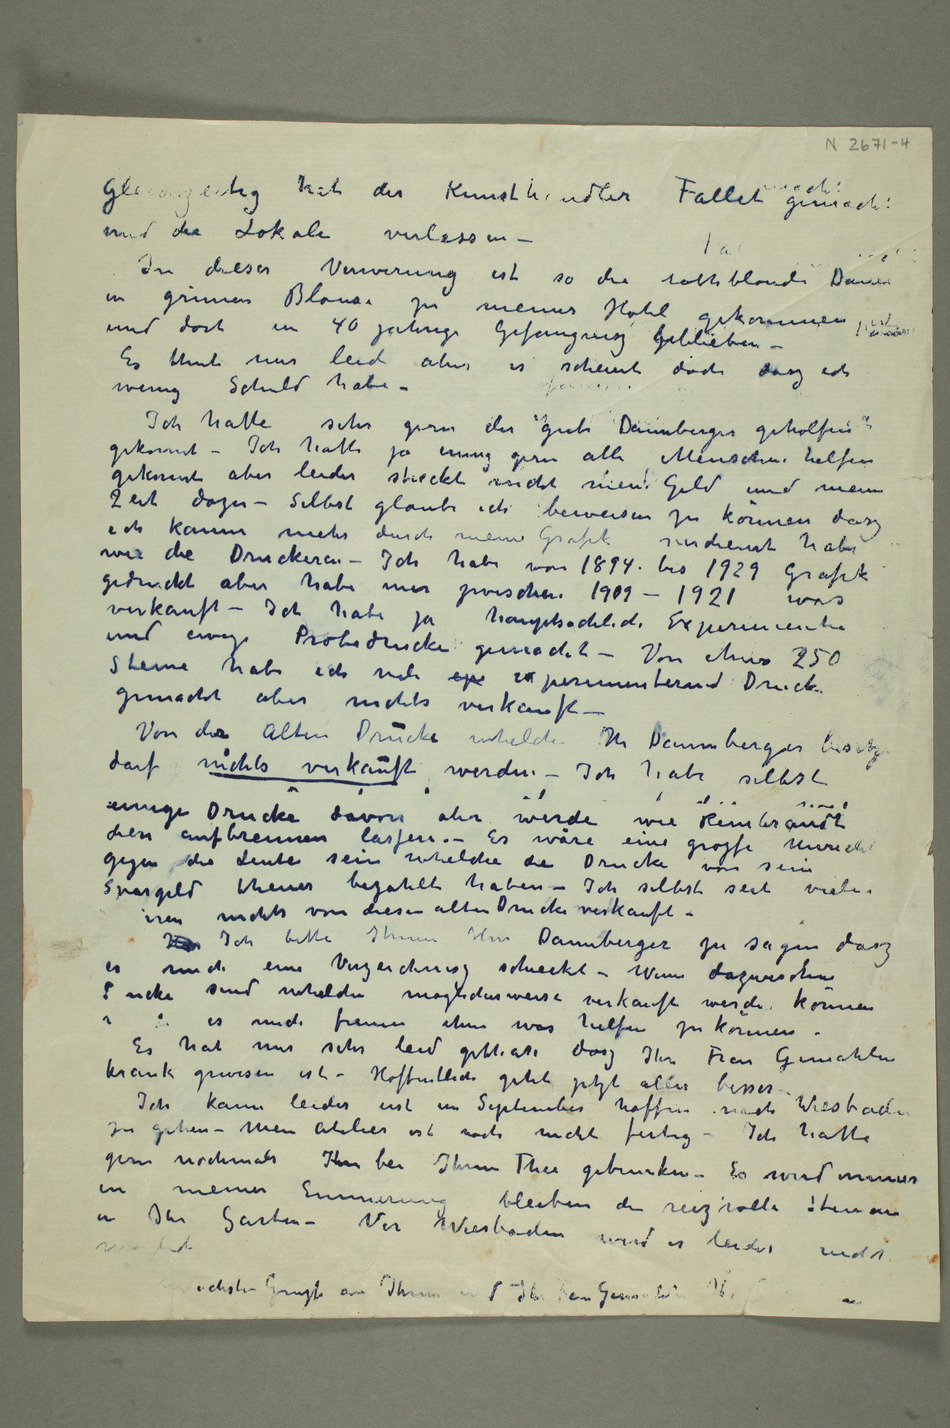 N 2671-4
Gleichzeitig hat der Kunsthändler Fallit gemacht
und die Lokale verlassen —
In dieser Verwirrung ist so die rothblonde Dame
in grünner Blouse zu meiner Hotel gekommen
und dort in 40 jahrige Gefängnisz geblieben —
Es thut mir leid aber es scheint doch dasz ich
wenig Schuld habe —
Ich hatte sehr gern der "gute Dannberger geholfen"
gekonnt — Ich hatte ja immer gern alle Menschen helfen
gekonnt aber leider streckt nicht mein Geld und meine
Zeit dazu — Selbst glaube ich beweisen zu können dasz
ich kaum mehr durch meine Grafik verdient habe
wie die Druckerei — Ich habe von 1894 bis 1929 Grafik
gedruckt aber habe nur zwischen 1909 — 1921 was
verkauft — Ich habe ja hauptsächlich Experimente
und einige Probedrucke gemacht — Von etwa 250
Steine habe ich viele experimenterend Drucke
gemacht aber nichts verkauft —
Von der Alten Drucke whelche Hr Dannberger besitzt
darf nichts verkauft werden — Ich habe selbst
einige Drucke davon aber werde wie Rembrandt
den aufbrennen lassen — Es wäre eine grosse Unrecht
gegen die Leute sein whelche die Drucke von sein
Spargeld theuer bezahlt haben — Ich selbst seit viele
nichts von diese alten Drucke verkauft —
Ich bitte Ihnen Herr Dannberger zu sagen dasz
er mich eine Verzeichnisz schickt — Wenn dazwischen
Drucke sind whelche möglicherweise verkauft werde können
es mich freuen ihm was helfen zu können —
Es hat mir sehr leid gethan dasz Ihr Frau Gemahlin
krank gewesen ist — Hoffentlich geht jetzt alles besser —
Ich kann leider erst im September hoffen nach Wiesbaden
zu gehen — Mein Atelier ist noch nicht fertig — Ich hatte
gern nochmals bei Ihnen Thee getrunken — Es wird immer
in meiner Erinnerung bleiben die reizvolle Stunden
in Ihr Garten — Vor Wiesbaden wird es leider nicht
Grusse an Ihnen und Ihr Frau Gemahlin